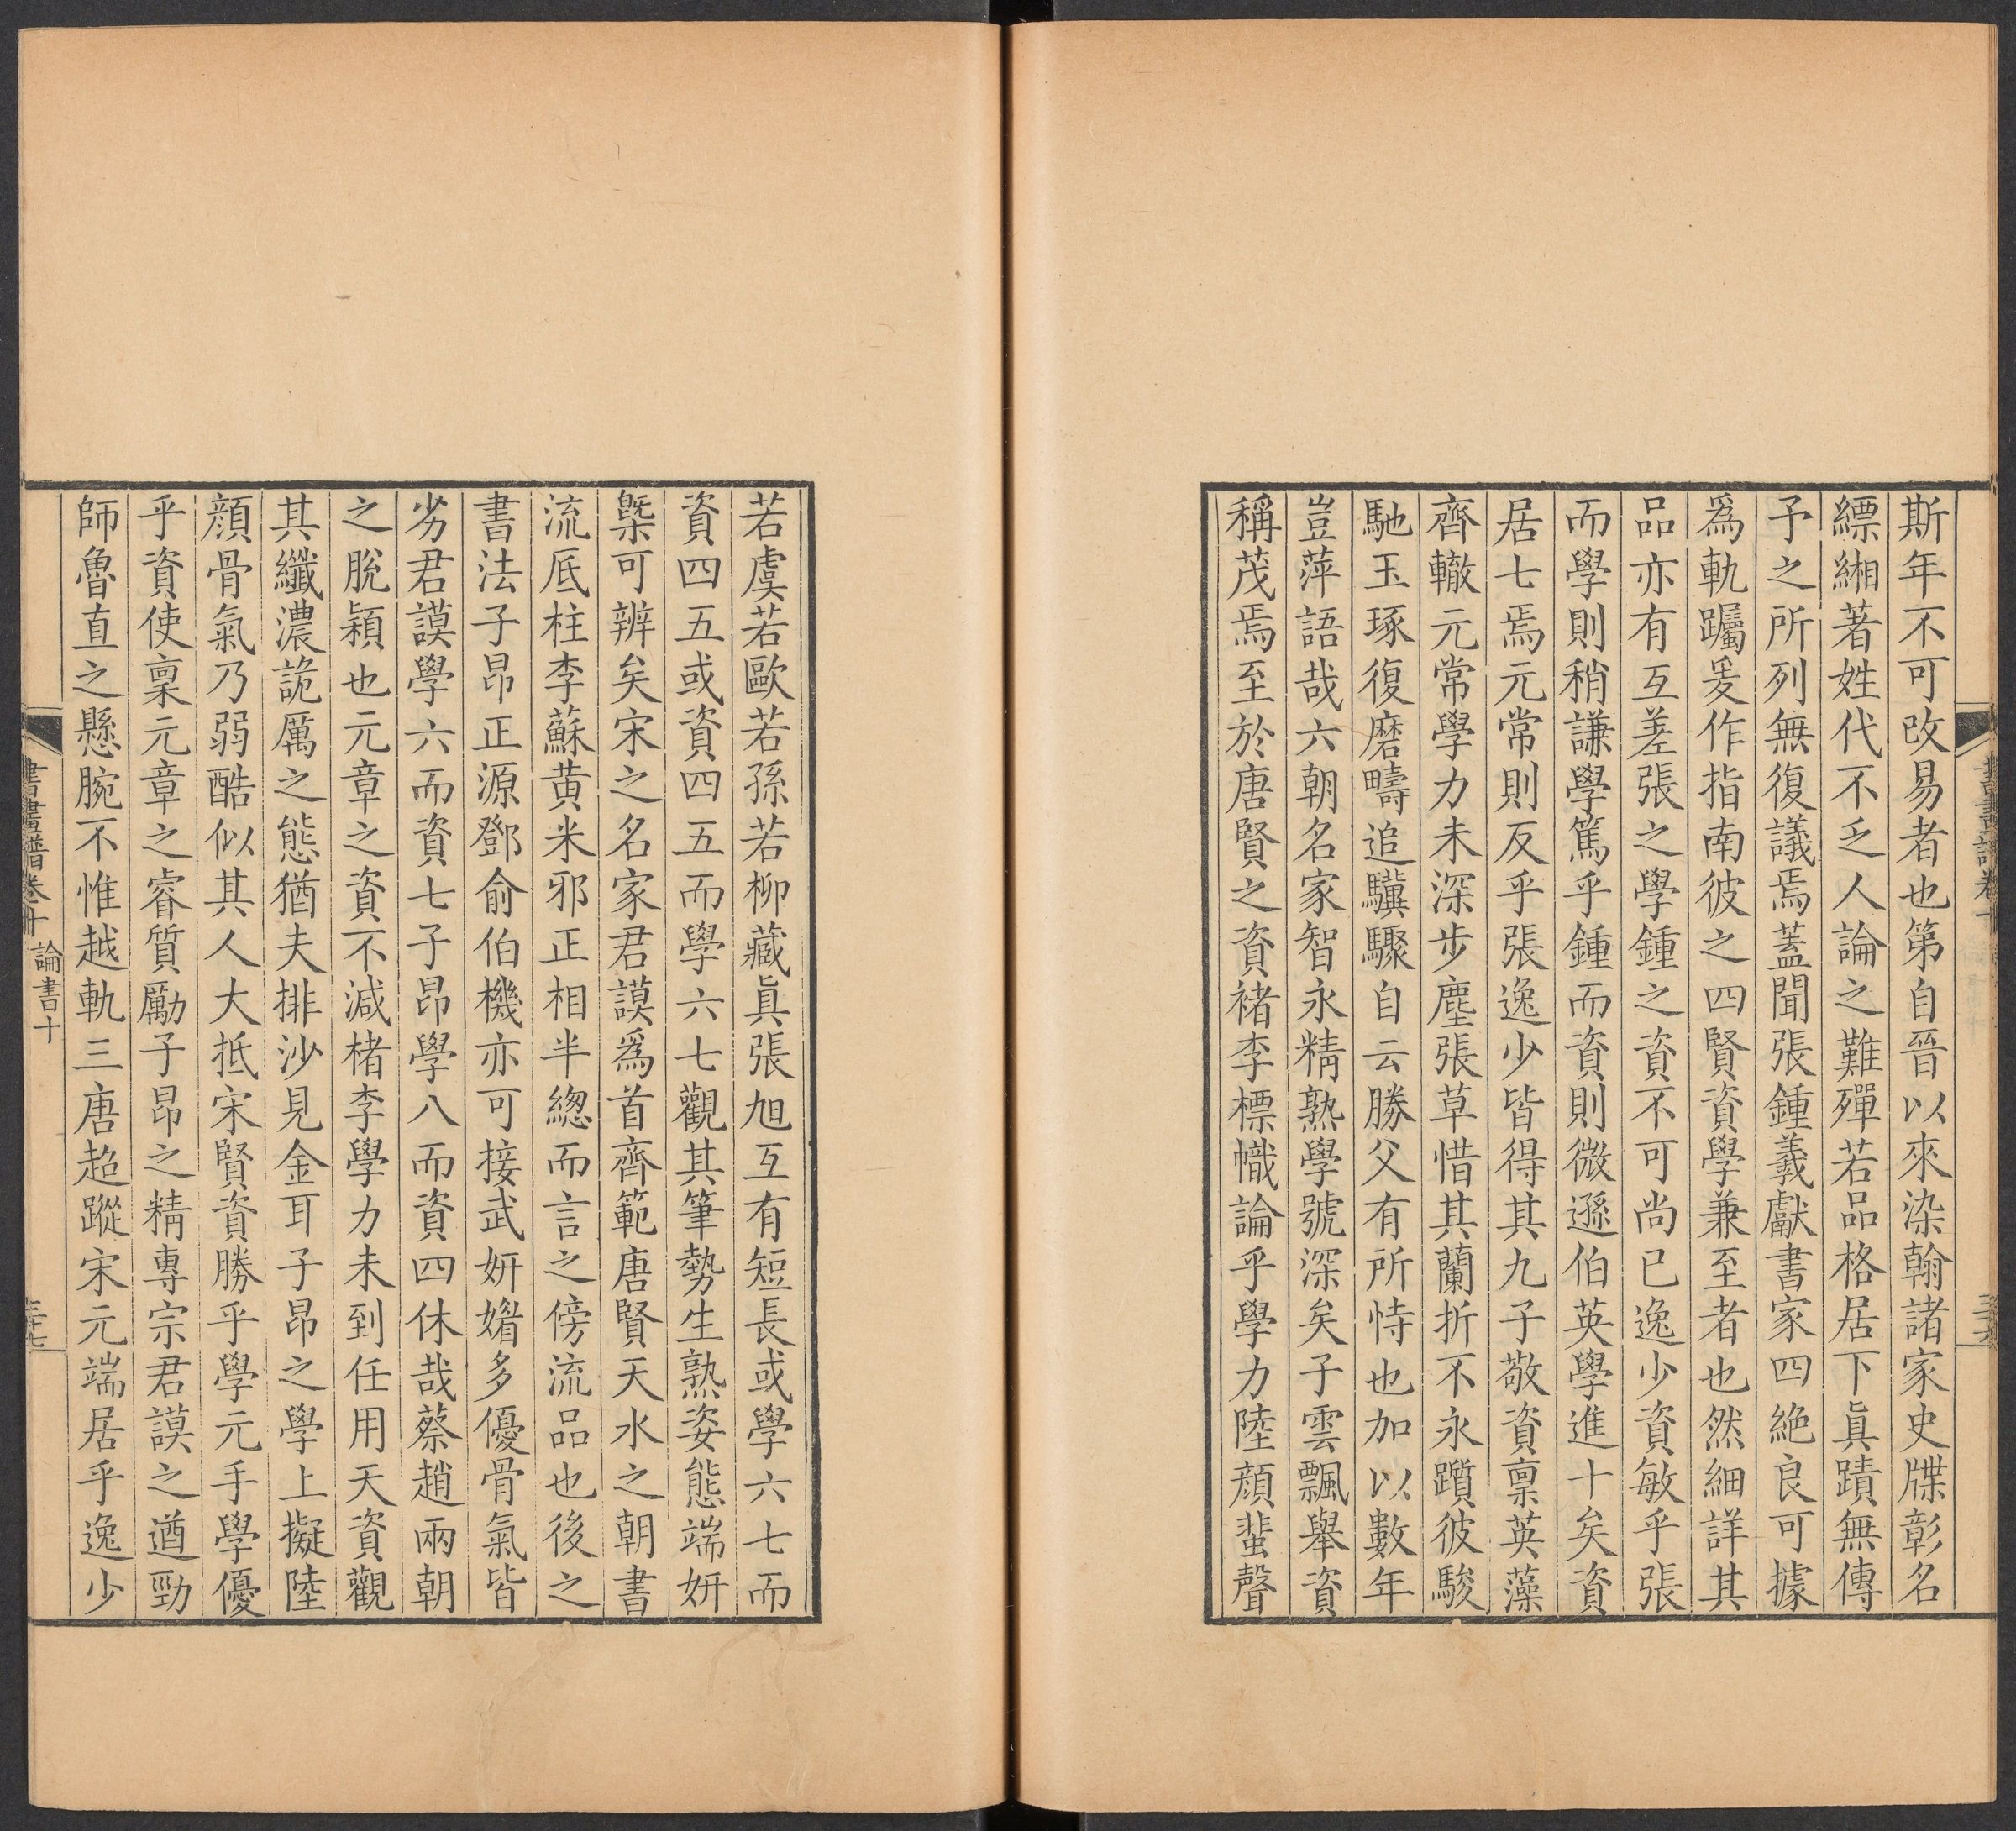 斯年不可改易者也第自晉以來染翰諸家史牒彰名
縹緗著姓代不乏人論之難殫若品格居下眞蹟無傳
予之所列無復議焉蓋聞張鍾羲獻書家四絶良可據
爲軌躅爰作指南彼之四賢資學兼至者也然細詳其
品亦有互差張之學鍾之資不可尚已逸少資敏乎張
而學則稍謙學篤乎鍾而資則微遜伯英學進十矣資
居七焉元常則反乎張逸少皆得其九子敬資稟英藻
齊轍元常學力未深步塵張草惜其蘭折不永躓彼駿
馳玉琢復磨疇追驥驟自云勝父有所恃也加以數年
豈萍語哉六朝名家智永精熟學號深矣子雲飄舉資
稱茂焉至於唐賢之資褚李標幟論乎學力陸顔蜚聲
若虞若歐若孫若柳藏眞張旭互有短長或學六七而
資四五或資四五而學六七觀其筆勢生熟姿態端妍
槩可辨矣宋之名家君謨爲首齊範唐賢天水之朝書
流厎柱李蘇黄米邪正相半緫而言之傍流品也後之
書法子昂正源鄧俞伯機亦可接武妍媚多優骨氣皆
劣君謨學六而資七子昂學八而資四休哉蔡趙兩朝
之脫穎也元章之資不減楮李學力未到任用天資觀
其纖濃詭厲之態猶夫排沙見金耳子昂之學上擬陸
顔骨氣乃弱酷似其人大抵宋賢資勝乎學元手學優
乎資使稟元章之睿質勵子昂之精專宗君謨之遒勁
師魯直之懸腕不惟越軌三唐超蹤宋元端居乎逸少
書畫譜卷十 論書十